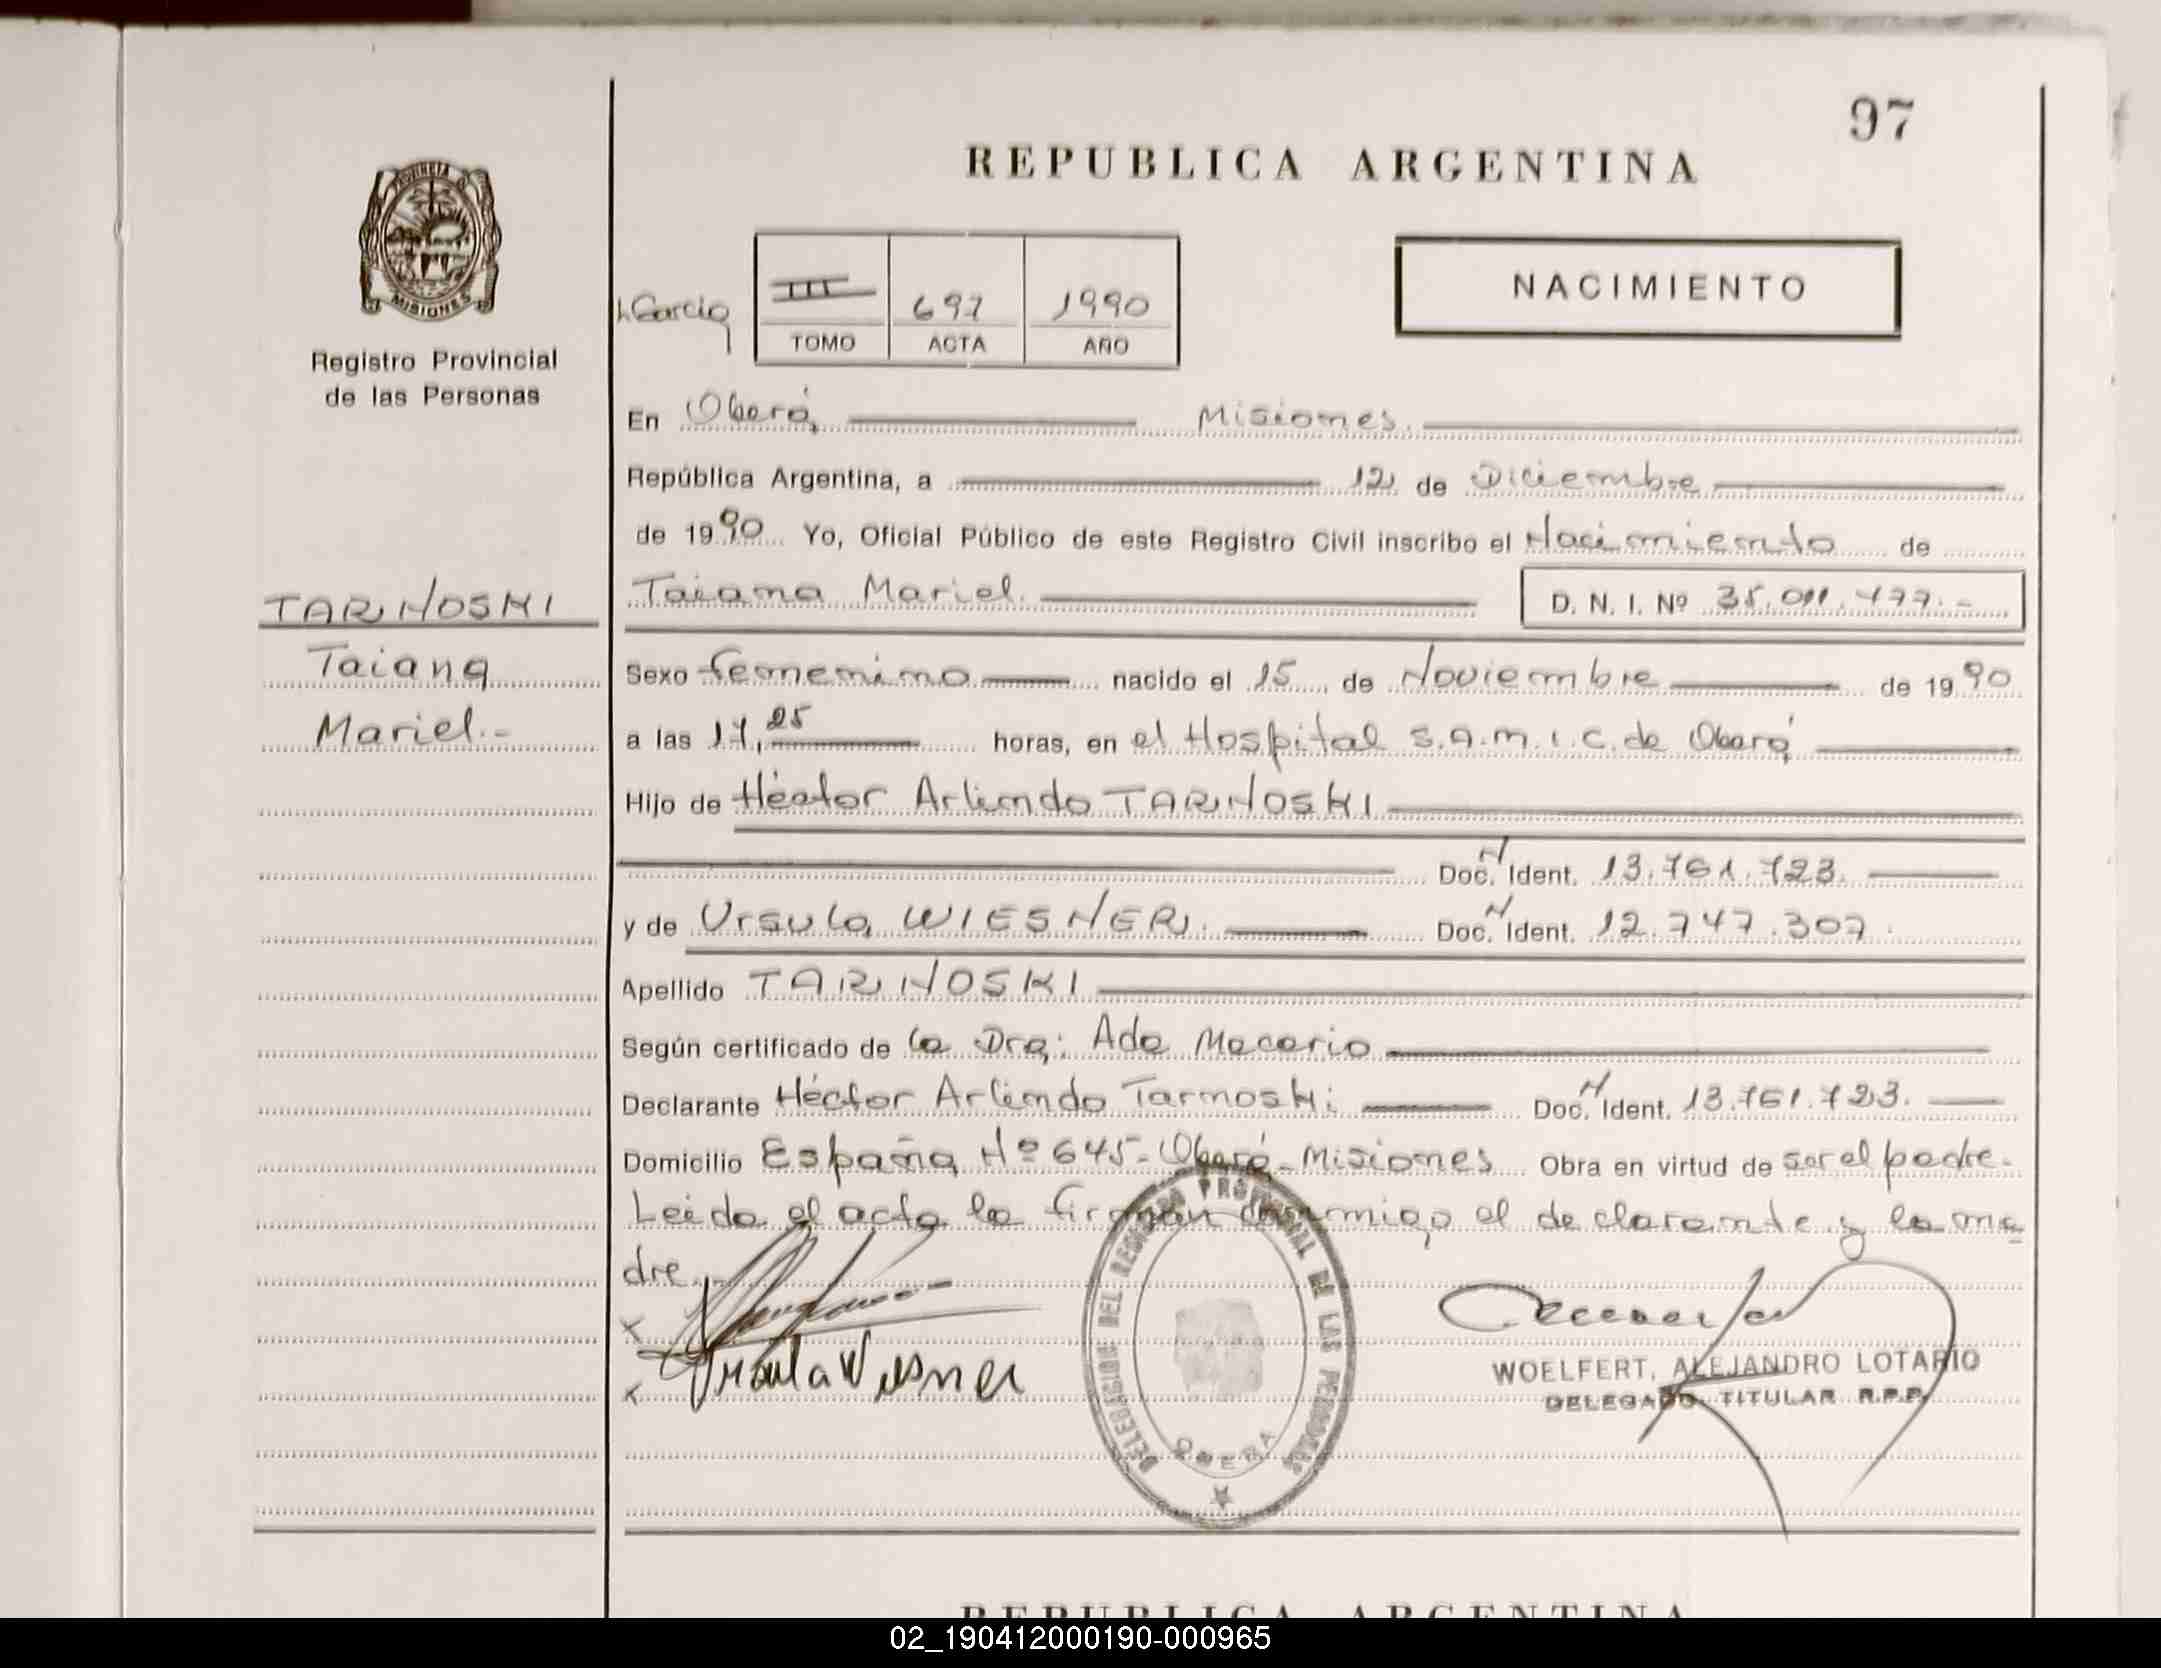 97
REPUBLICA ARGENTINA
PROVINCIA DE
MISIONES
Registro Provincial
de las Personas
NACIMIENTO
Garcia
III 697 1990
TOMO ACTA AÑO
En Oberá, Misiones.
República Argentina, a 12 de Diciembre
de 1990 Yo, Oficial Público de este Registro Civil inscribo el Nacimiento de
Taiana Mariel. D. N. I. Nº 35.011.477.-
TARNOSKI
Taiana
Mariel.-
Sexo femenino nacido el 15 de Noviembre de 1990
a las 17,25 horas, en el Hospital S.A.M.I.C. de Oberá
Hijo de Héctor Arlindo TARNOSKI
Doc. N Ident. 13.761.723.
y de Ursula WIESNER. Doc. N Ident. 12.747.307.
Apellido TARNOSKI
Según certificado de la Dra: Ada Macario
Declarante Héctor Arlindo Tarnoski Doc. N Ident. 13.761.723.
Domicilio España Nº 645-Oberá-Misiones Obra en virtud de ser el padre.
Leida el acta la firman conmigo el declarante y la ma
dre.-
x
x Ursula Wiesner
DELEGACION DEL REGISTRO PROVINCIAL DE LAS PERSONAS
OBERA
WOELFERT, ALEJANDRO LOTARIO
DELEGADO TITULAR R.P.P.
REPUBLICA ARGENTINA
02_190412000190-000965